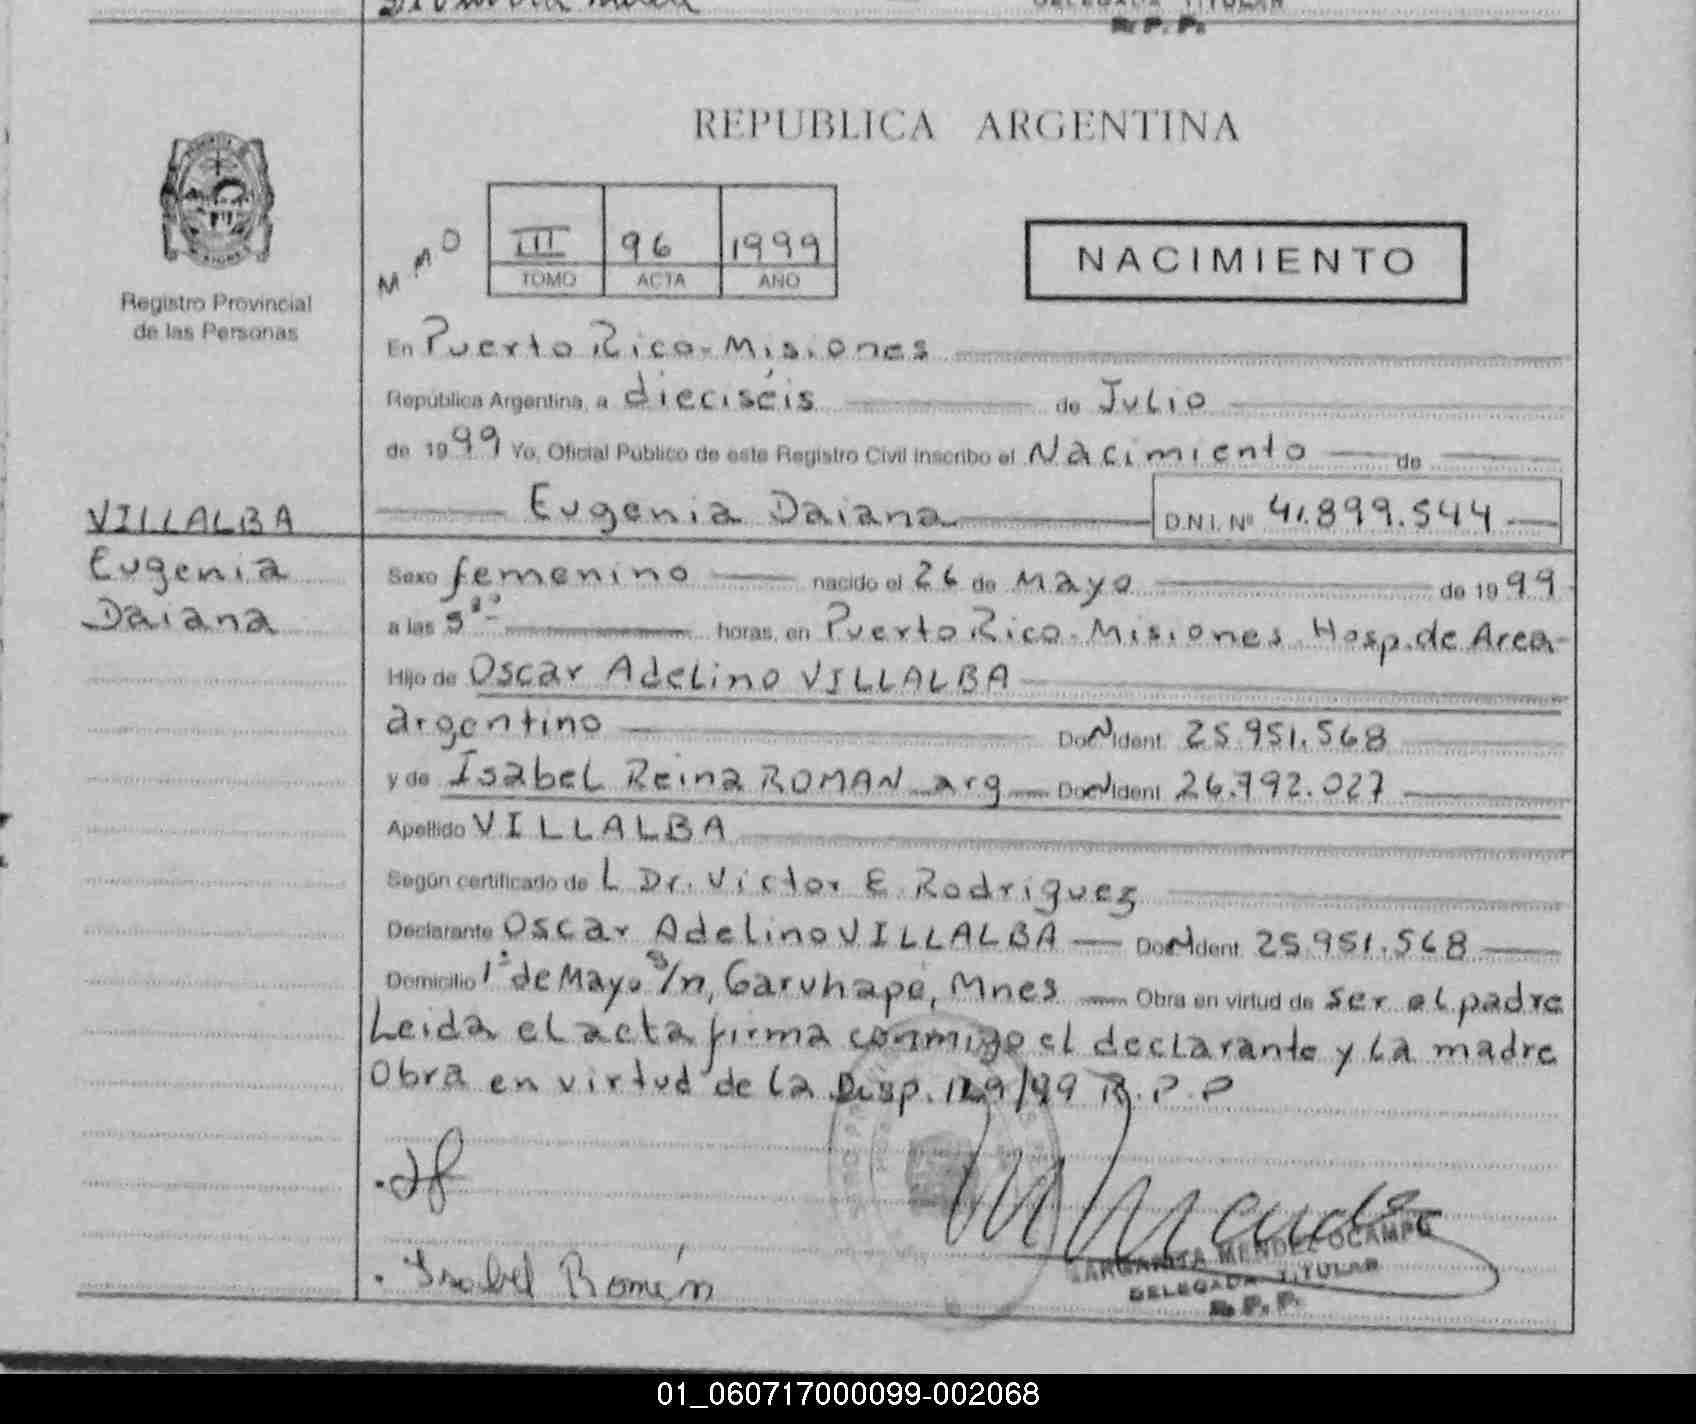 DELEGADA TITULAR
R. P. P.
REPUBLICA ARGENTINA
Registro Provincial
de las Personas
M.M.O
III 96 1999
TOMO ACTA AÑO
NACIMIENTO
En Puerto Rico-Misiones
República Argentina, a dieciséis de Julio
de 1999 Yo, Oficial Público de este Registro Civil inscribo el Nacimiento de
Eugenia Daiana D.N.I. Nº 41.899.544
VILLALBA
Eugenia
Daiana
Sexo femenino nacido el 26 de Mayo de 1999
a las 5 horas, en Puerto Rico-Misiones Hosp. de Area-
Hijo de Oscar Adelino VILLALBA
argentino Doc Ident. 25.951.568
y de Isabel Reina ROMAN arg Doc Ident. 26.792.027
Apellido VILLALBA
Según certificado de L Dr. Victor E. Rodriguez
Declarante Oscar Adelino VILLALBA Doc Ident. 25.951.568
Domicilio 1º de Mayo s/n, Garuhapé, Mnes Obra en virtud de ser el padre
Leida el acta firma conmigo el declarante y la madre
Obra en virtud de la Disp. 129/99 R.P.P
Isabel Román
MARGARITA MENDEZ OCAMPO
DELEGADA TITULAR
R. P. P.
01_060717000099-002068